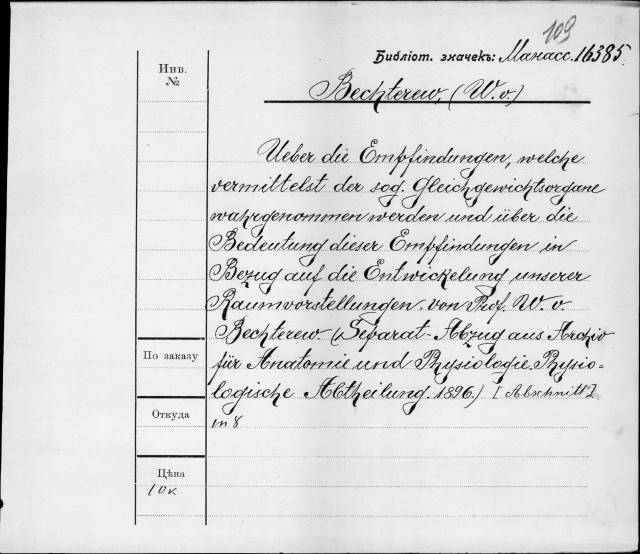 109
Библіот. значекъ: Манасс. 16385.
Инв.
№
Bechterew, (W. v.)
Ueber die Empfindungen, welche
vermittelst der sog. Gleichgewichtsorgane
wahrgenommen werden und über die
Bedeutung dieser Empfindungen in
Bezug auf die Entwickelung unserer
Raumvorstellungen. von Prof. W. v.
Bechterew. (Separat-Abzug aus Archiv
По заказу
für Anatomie und Physiologie. Physio=
logische Abtheilung. 1896.) [Abschnitt]
Откуда
in 8
Цѣна
10 к